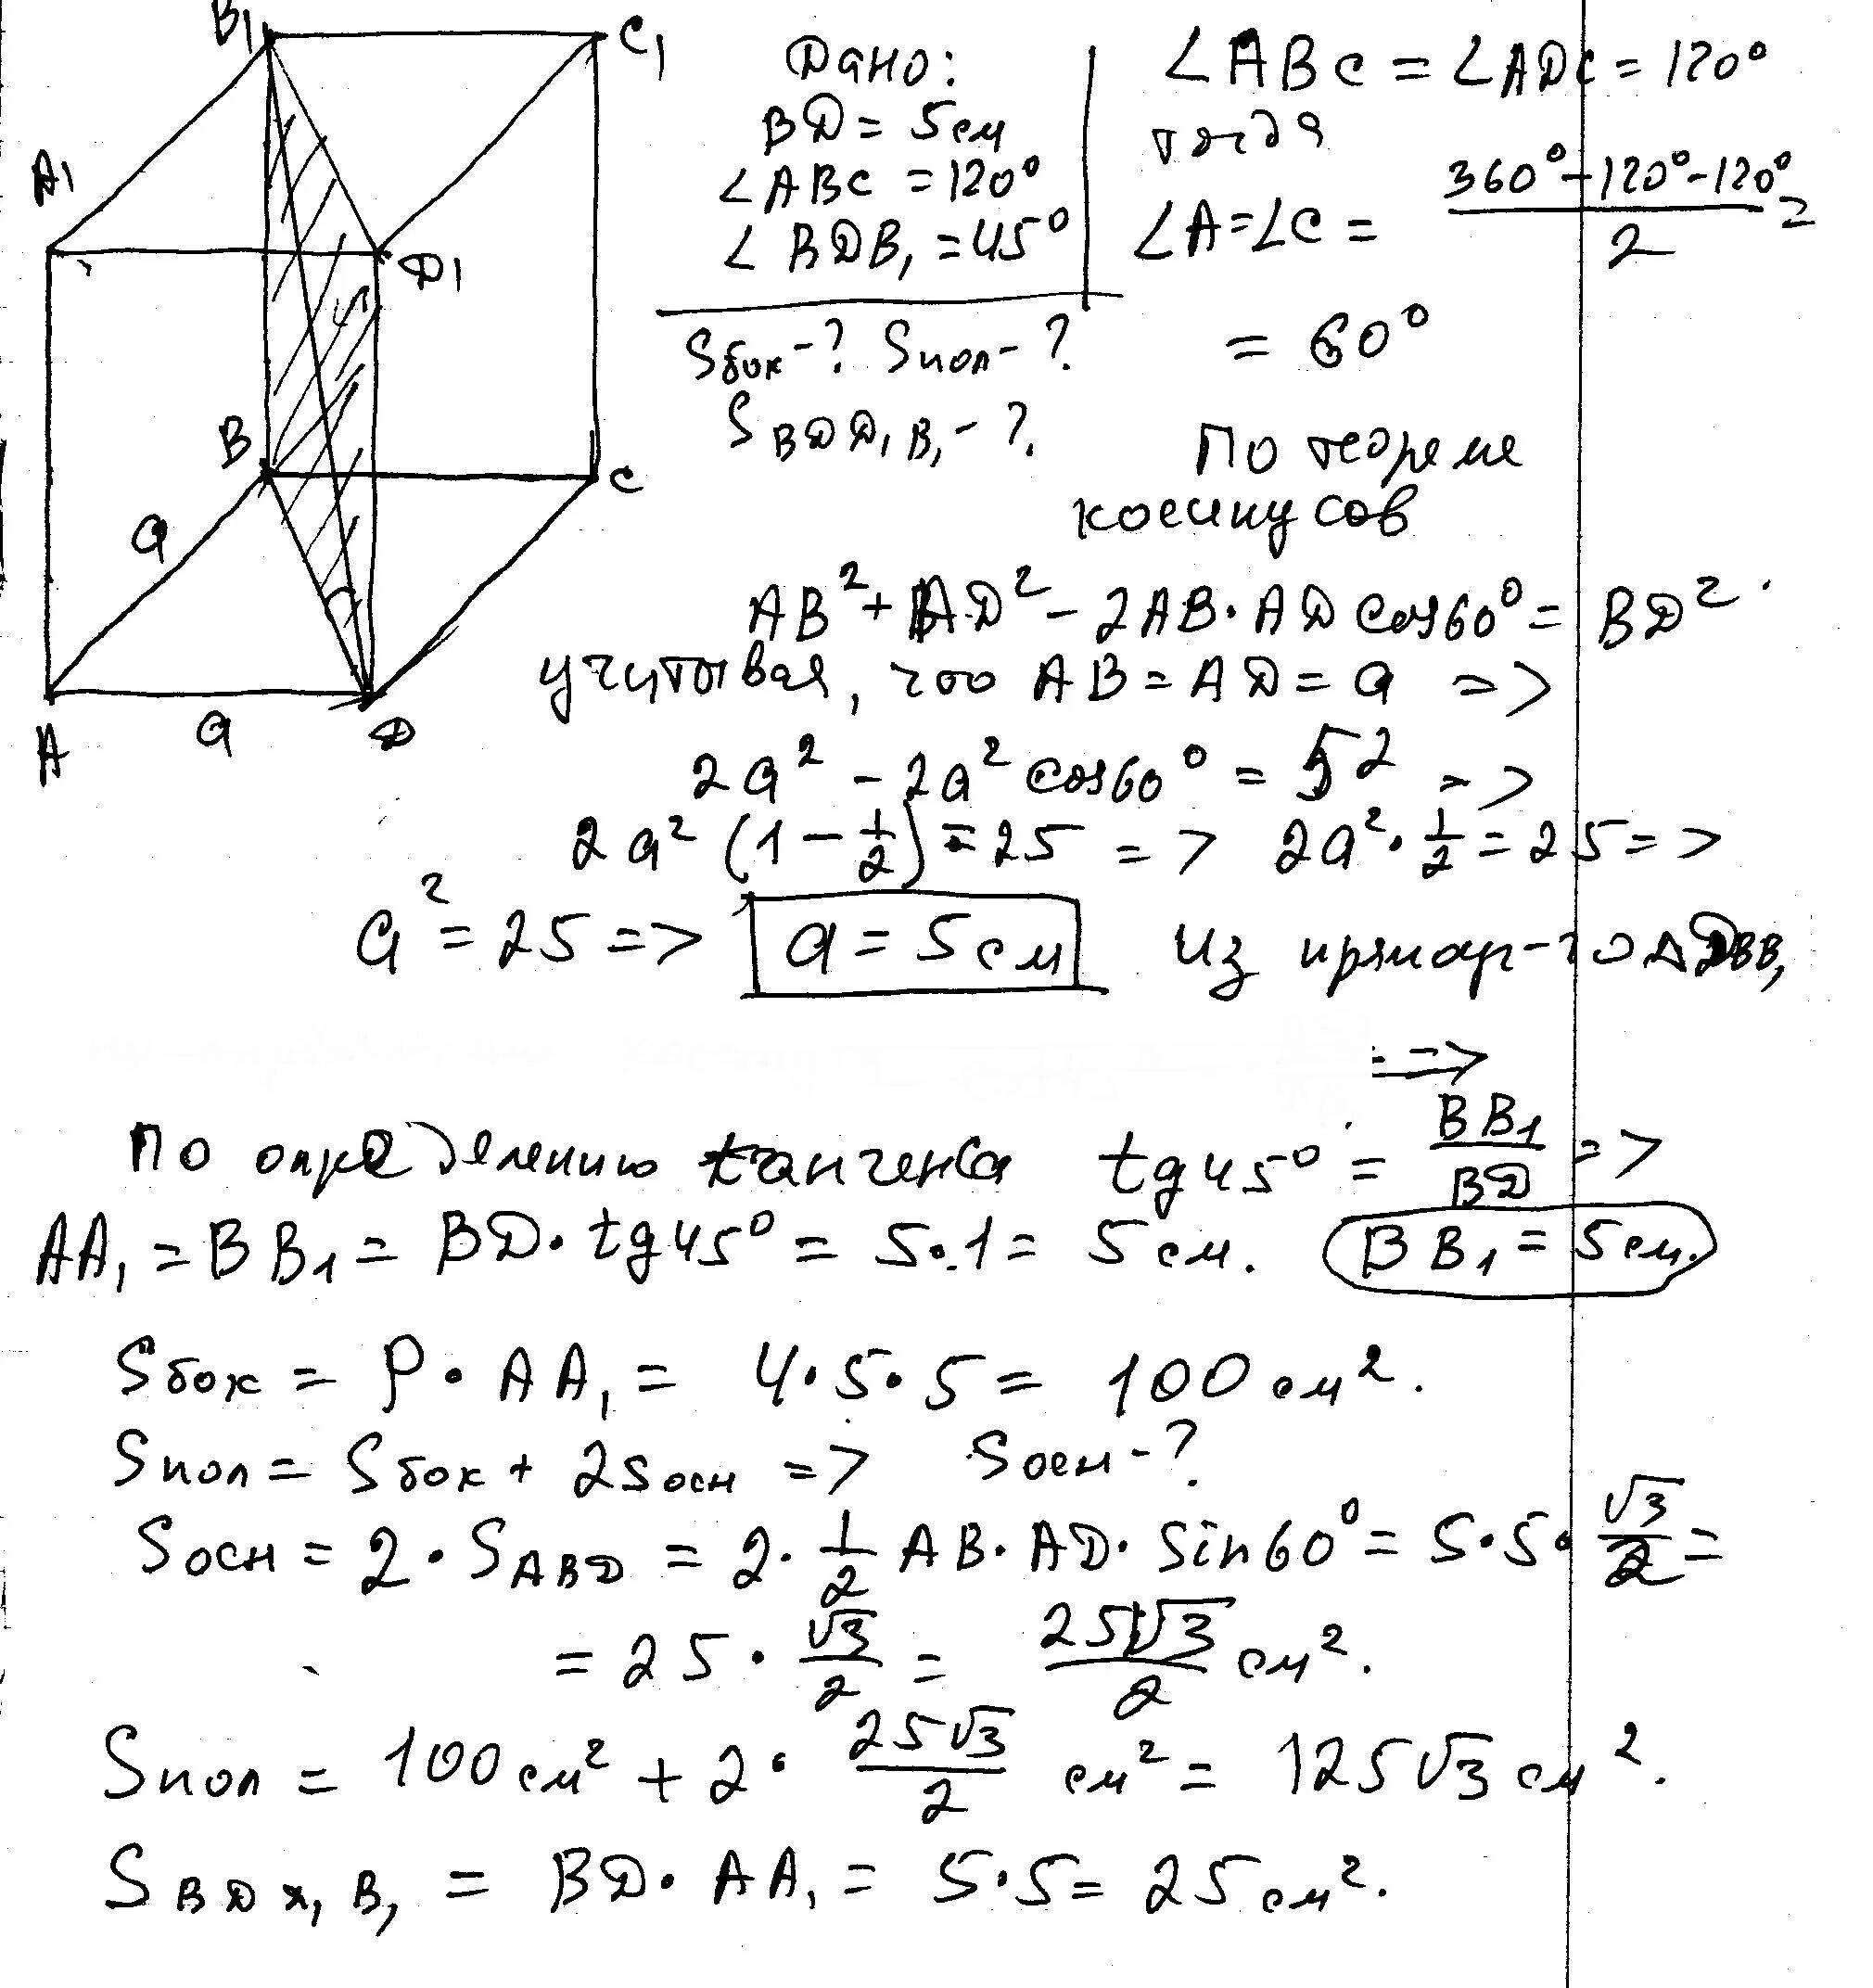 B₁
C₁
A₁
D₁
B
C
a
A
a
D
Дано:
BD = 5 см
∠ABC = 120°
∠BDB₁ = 45°
Sбок - ? Sпол - ?
S BDD₁B₁ - ?
∠ABC = ∠ADC = 120°
тогда
∠A = ∠C = (360° - 120° - 120°)/2 =
= 60°
По теореме
косинусов
AB² + AD² - 2AB · AD cos60° = BD²
учитывая, что AB = AD = a =>
2a² - 2a² cos60° = 5² =>
2a² (1 - 1/2) = 25 => 2a² · 1/2 = 25 =>
a² = 25 => a = 5 см из прямоуг-го ΔDBB₁
=>
По определению тангенса tg45° = BB₁/BD =>
AA₁ = BB₁ = BD · tg45° = 5 · 1 = 5 см. BB₁ = 5 см.
Sбок = P · AA₁ = 4 · 5 · 5 = 100 см².
Sпол = Sбок + 2Sосн => Sосн - ?
Sосн = 2 · S ABD = 2 · 1/2 AB · AD · Sin60° = 5 · 5 · √3/2 =
= 25 · √3/2 = 25√3/2 см².
Sпол = 100 см² + 2 · 25√3/2 см² = 125√3 см².
S BDD₁B₁ = BD · AA₁ = 5 · 5 = 25 см².